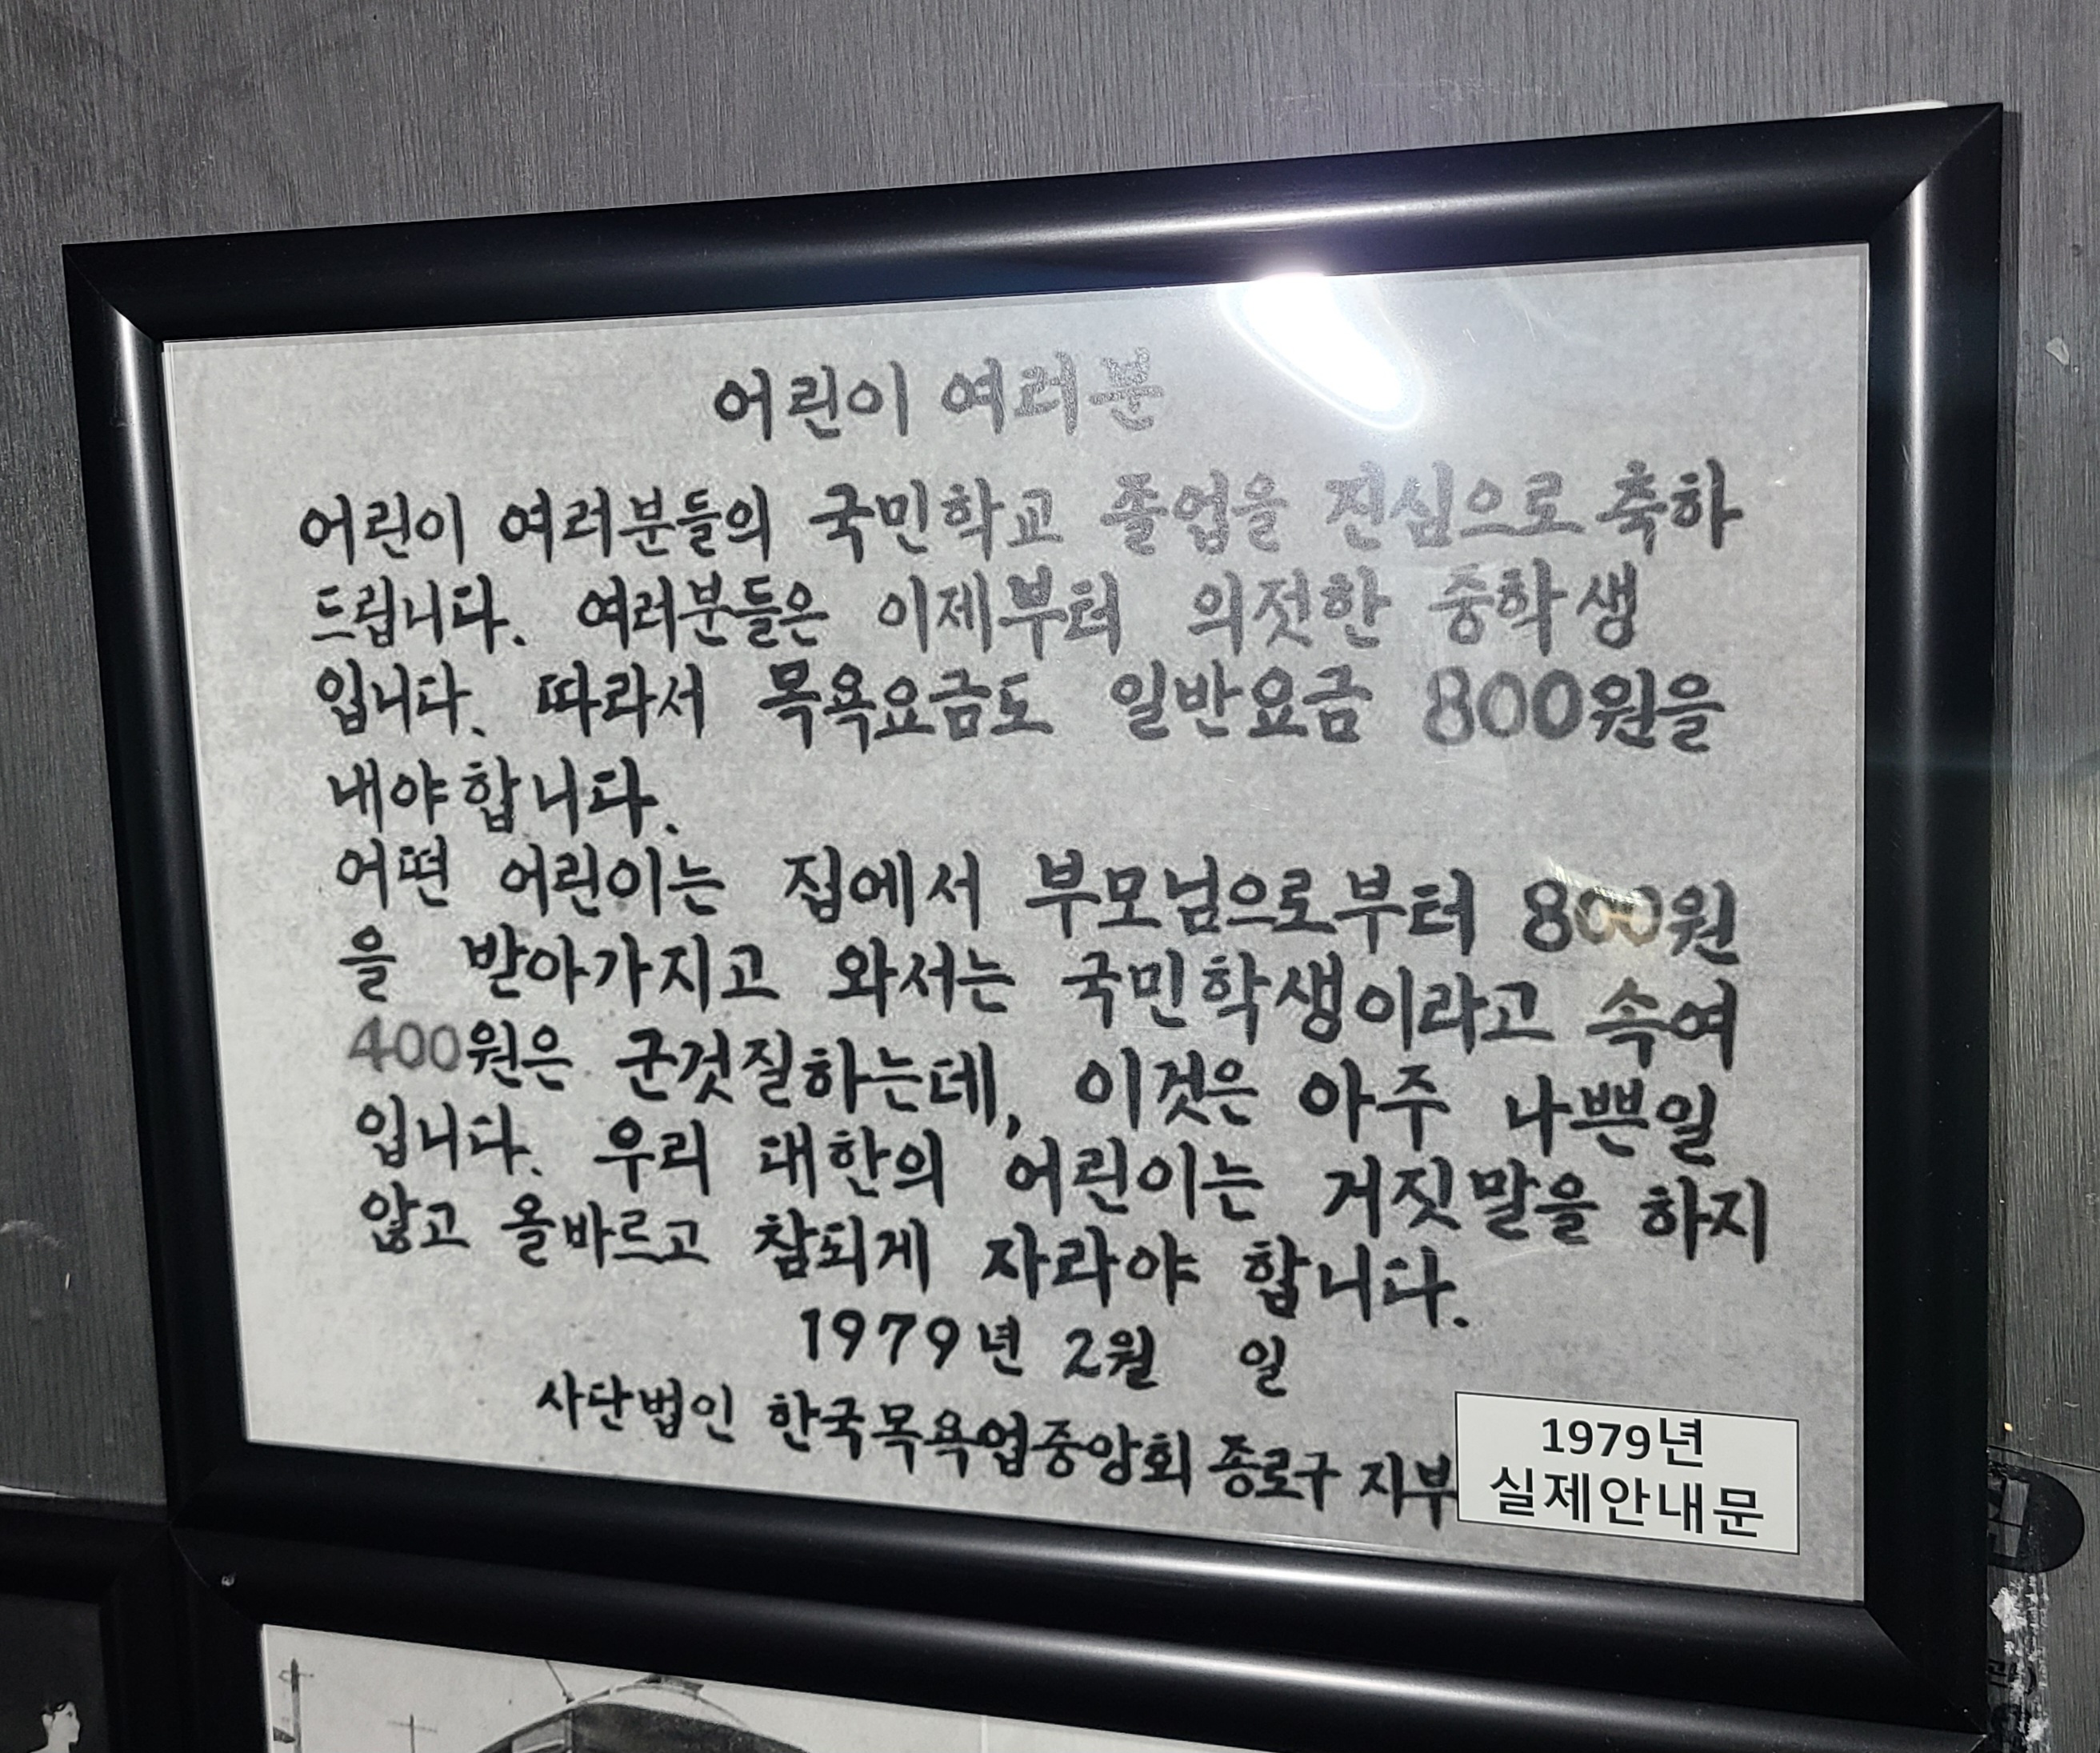 어린이 여러분
어린이 여러분들의 국민학교 졸업을 진심으로 축하
드립니다. 여러분들은 이제부터 의젓한 중학생
입니다. 따라서 목욕요금도 일반요금 800원을
내야합니다.
어떤 어린이는 집에서 부모님으로부터 800원
을 받아가지고 와서는 국민학생이라고 속여
400원은 군것질하는데, 이것은 아주 나쁜일
입니다. 우리 대한의 어린이는 거짓말을 하지
않고 올바르고 참되게 자라야 합니다.
1979년 2월 일
사단법인 한국목욕업중앙회 종로구 지부
1979년
실제안내문